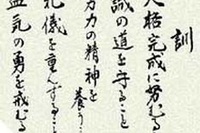 訓
人格完成に努むる
誠の道を守ること
努力の精神を養うこ
礼儀を重んずるこ
血気の勇を戒むる